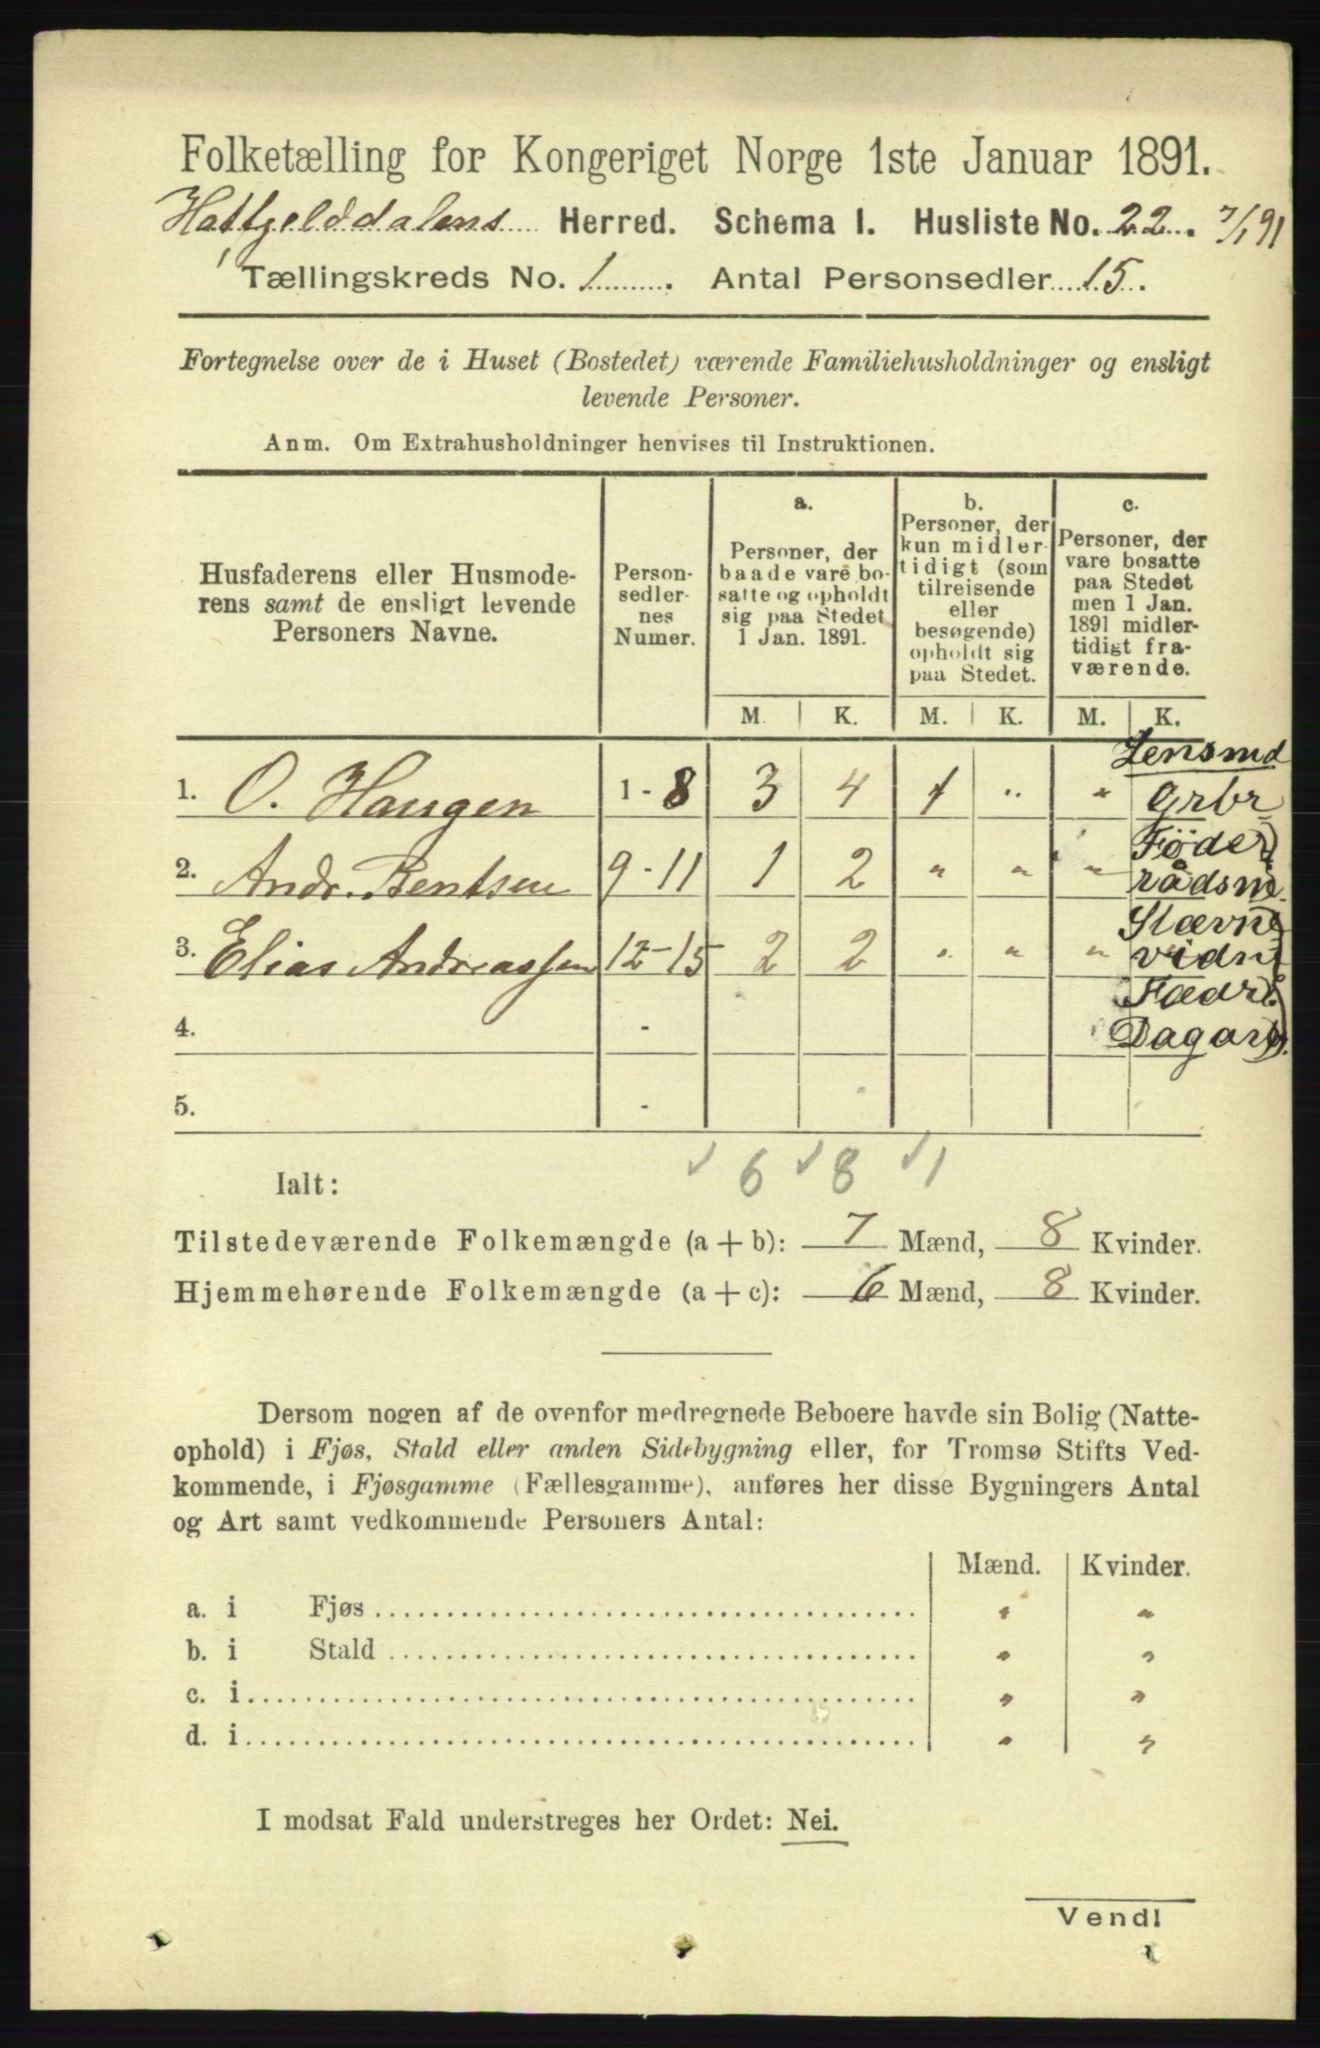 Folketælling for Kongeriget Norge 1ste Januar 1891.
Hatfjelddalens Herred. Schema I. Husliste No. 22. 7/1 91
Tællingskreds No. 1. Antal Personsedler 15.
Fortegnelse over de i Huset (Bostedet) værende Familiehusholdninger og ensligt
levende Personer.
Anm. Om Extrahusholdninger henvises til Instruktionen.
Husfaderens eller Husmoderens samt de ensligt levende Personers Navne.
Personsedlernes Numer.
a. Personer, der baade vare bosatte og opholdt sig paa Stedet 1 Jan. 1891.
b. Personer, der kun midlertidigt (som tilreisende eller besøgende) opholdt sig paa Stedet.
c. Personer, der vare bosatte paa Stedet men 1 Jan. 1891 midlertidigt fraværende.
M. K. M. K. M. K.
1. O. Haugen 1-8 3 4 1 " " Lensmd
grbr
2. Andr. Bentsen 9-11 1 2 " " " Föder
rådsm
3. Elias Andreassen 12-15 2 2 " " " Stævne
vidn
Fædr.
4. - Dagarb.
5. -
6 8 1
Ialt:
Tilstedeværende Folkemængde (a+b): 7 Mænd, 8 Kvinder.
Hjemmehørende Folkemængde (a+c): 6 Mænd, 8 Kvinder.
Dersom nogen af de ovenfor medregnede Beboere havde sin Bolig (Natte-
ophold) i Fjøs, Stald eller anden Sidebygning eller, for Tromsø Stifts Ved-
kommende, i Fjøsgamme (Fællesgamme), anføres her disse Bygningers Antal
og Art samt vedkommende Personers Antal:
Mænd. Kvinder.
a. i Fjøs " "
b. i Stald " "
c. i " "
d. i " "
I modsat Fald understreges her Ordet: Nei.
Vend!